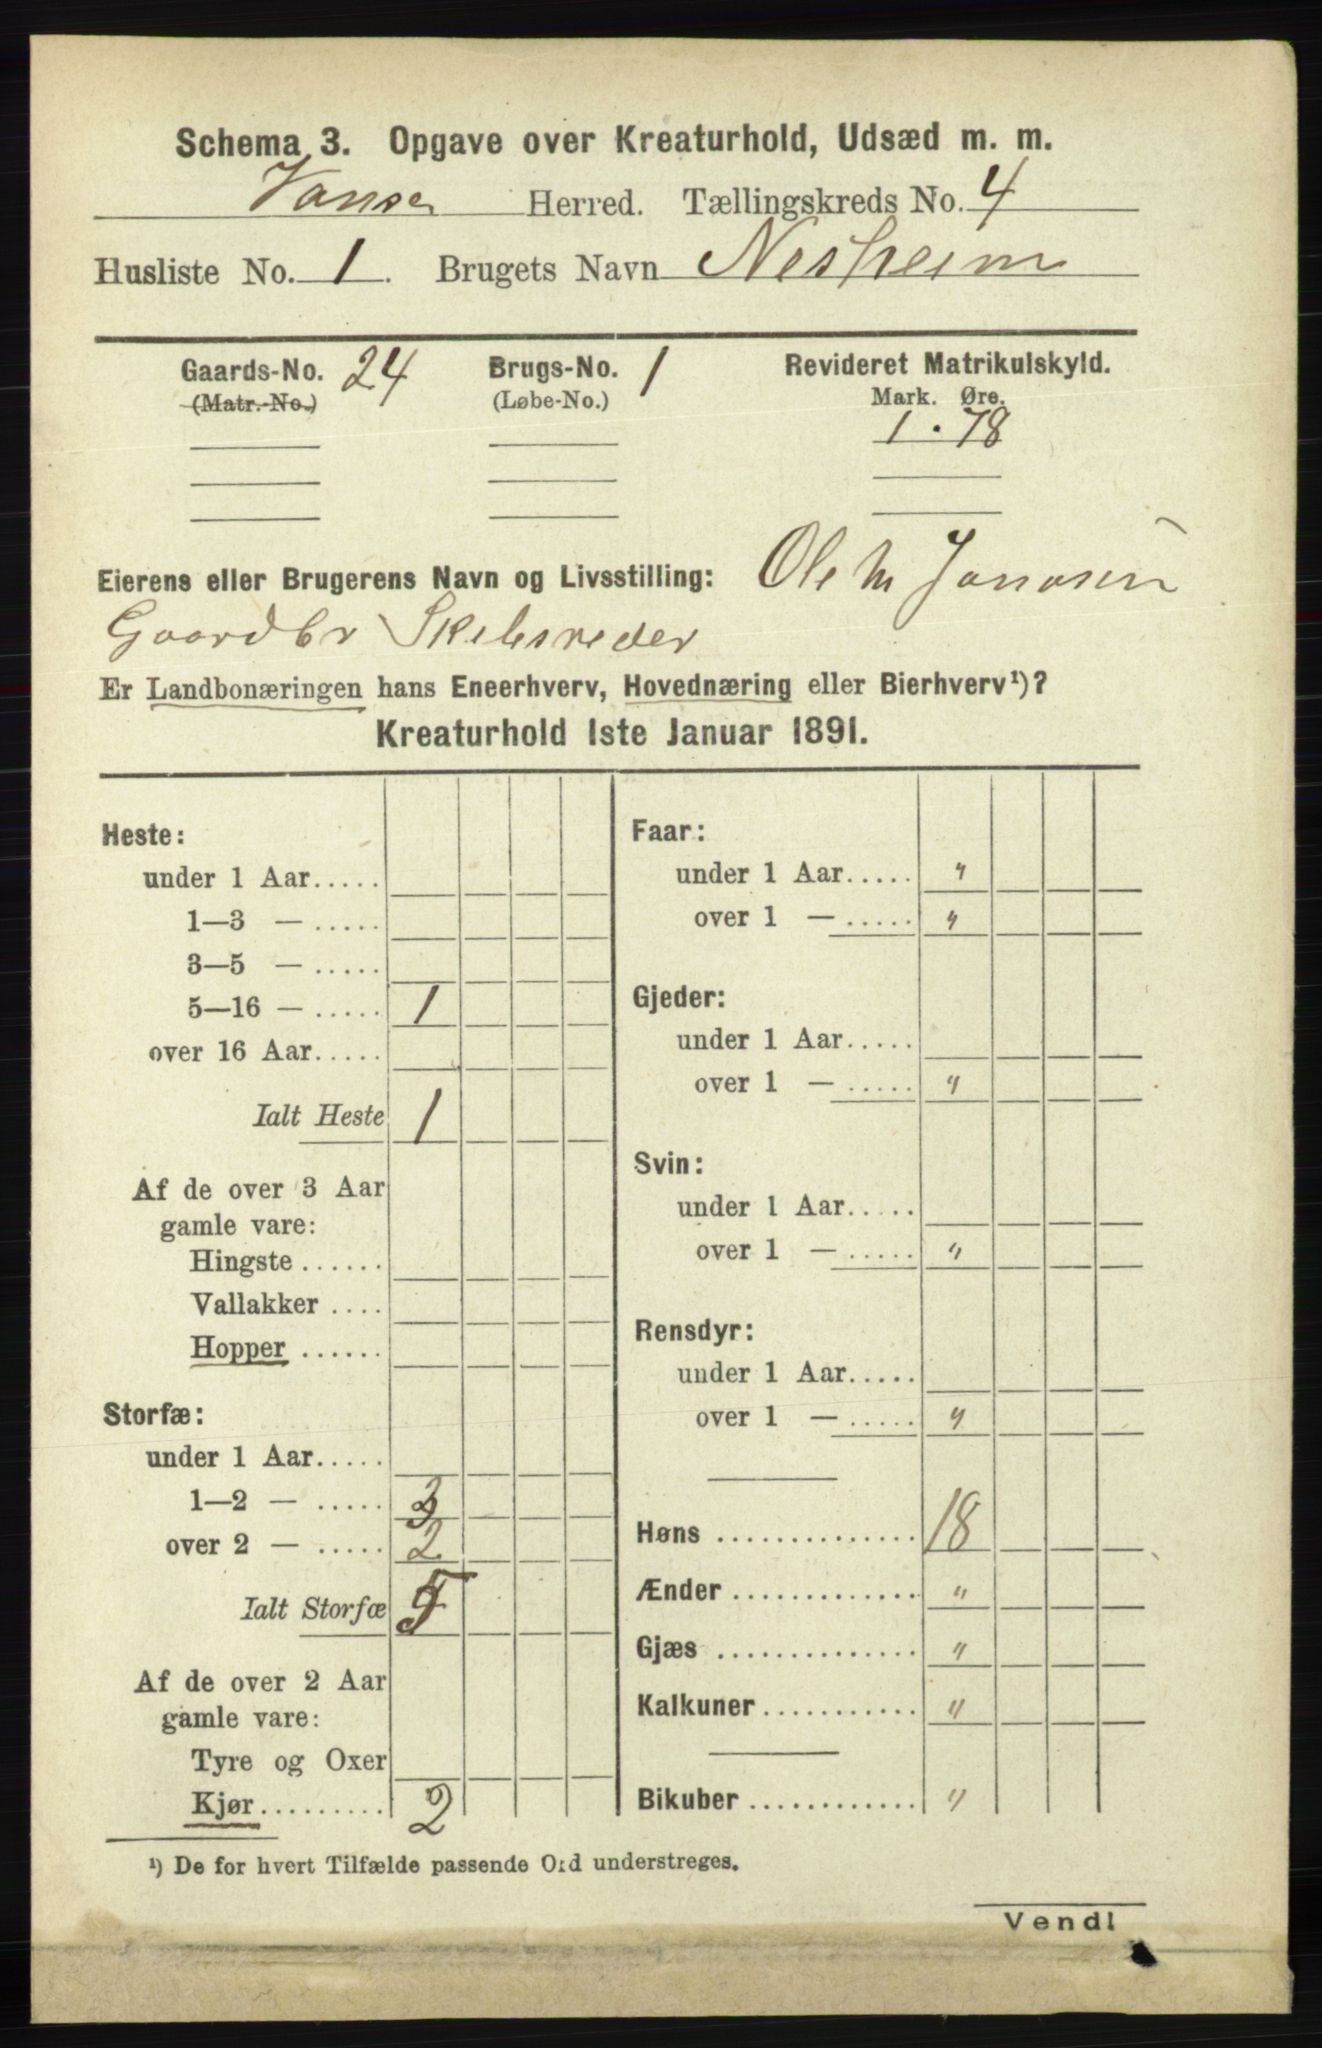 Schema 3. Opgave over Kreaturhold, Udsæd m. m.
Vanse Herred. Tællingskreds No. 4
Husliste No. 1. Brugets Navn Nesheim
Gaards-No. 24 Brugs-No. 1 Revideret Matrikulskyld.
(Matr.-No.) (Løbe-No.) Mark. Øre.
1 . 78
Eierens eller Brugerens Navn og Livsstilling: Ole M Jonasen
Gaardbr Skibsreder
Er Landbonæringen hans Eneerhverv, Hovednæring eller Bierhverv¹)?
Kreaturhold 1ste Januar 1891.
Heste:
under 1 Aar.....
1—3 — .....
3—5 — .....
5—16 — ..... 1
over 16 Aar.....
Ialt Heste 1
Af de over 3 Aar
gamle vare:
Hingste ......
Vallakker ....
Hopper ......
Storfæ:
under 1 Aar.....
1—2 — ..... 3
over 2 — ..... 2
Ialt Storfæ 5
Af de over 2 Aar
gamle vare:
Tyre og Oxer
Kjør.......... 2
Faar:
under 1 Aar..... "
over 1 — ..... "
Gjeder:
under 1 Aar.....
over 1 — ..... "
Svin:
under 1 Aar.....
over 1 — ..... "
Rensdyr:
under 1 Aar.....
over 1 — ..... "
Høns .............. 18
Ænder ............. "
Gjæs .............. "
Kalkuner ........... "
Bikuber ............ "
¹) De for hvert Tilfælde passende Ord understreges.
Vend!